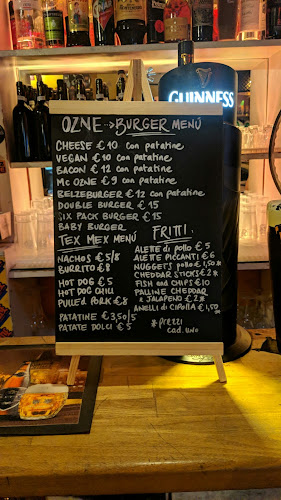 GUINNESS
OZNE → BURGER MENÚ
CHEESE €10 con patatine
VEGAN €10 con patatine
BACON €12 con patatine
Mc OZNE €9 con patatine
BELZEBURGER €12 con patatine
DOUBLE BURGER €15
SIX PACK BURGER €15
BABY BURGER
TEX MEX MENÚ
NACHOS €5/8
BURRITO €8
HOT DOG €5
HOT DOG CHILI
PULLED PORK €8
PATATINE €3,50/5
PATATE DOLCI €5
FRITTI.
ALETTE di pollo €5
ALETTE PICCANTI €6
NUGGETS pollo €1,50*
CHEDDAR STICKS €2*
FISH and CHIPS €10
PALLINE CHEDDAR
& JALAPENO €2*
ANELLI di CIPOLLA €1,50*
*prezzi
cad. uno